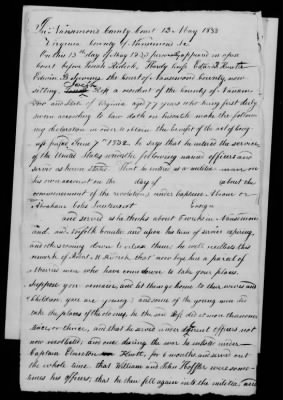 In Nansemond County Court 13. May 1833
Virginia County of Nansemond Sc
On this 13th day of May 1833 personally appeared in open
court before Josiah Riddick, Hardy
Edwin B Jennings the Court of Nansemond County now
sitting, Joseph a resident of the County of Nansem
ond and State of Virginia aged 77 years who being first duly
sworn according to law doth on his oath make the following
declaration in order to obtain the benefit of the act of Cong
ress passed June 7th 1832. he says that he entered the service
of the United States under the following named officers and
served as herein stated. That he entered as a militia man
on his own account on the day of about the
commencement of the revolution under Captain
Abraham Lieutenant Ensign
and served as he thinks about two weeks in Nansemond
and Norfolk Counties and upon his term of service expiring,
and others coming down to relieve them he well recollects this
remark of that now boys here is a parcel of
men who have come down to take your places.
Suppose you remain, and let them go home to their wives and
Children. you are young: and some of the young men did
take the places of the old ones, he the said did it more than once
twice or thrice, and that he served under officers not
now recollected, and once during the war he enlisted under
Captain for 6 months and served out
the whole time that William and John were some
times his officers; that he then fell again into the militia, and